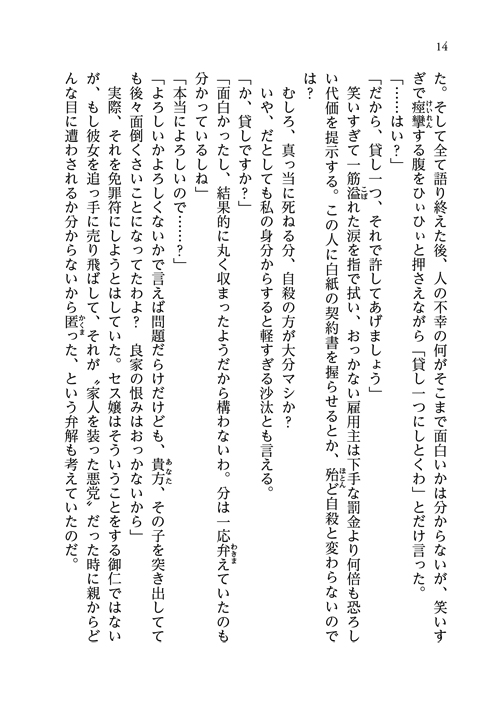 14
た。そして全て語り終えた後、人の不幸の何がそこまで面白いかは分からないが、笑いす
ぎで痙攣する腹をひぃひぃと押さえながら「貸し一つにしとくわ」とだけ言った。
「……はい？」
「だから、貸し一つ、それで許してあげましょう」
　笑いすぎて一筋溢れた涙を指で拭い、おっかない雇用主は下手な罰金より何倍も恐ろし
い代価を提示する。この人に白紙の契約書を握らせるとか、殆ど自殺と変わらないので
は？
　むしろ、真っ当に死ねる分、自殺の方が大分マシか？
　いや、だとしても私の身分からすると軽すぎる沙汰とも言える。
「か、貸しですか？」
「面白かったし、結果的に丸く収まったようだから構わないわ。分は一応弁えていたのも
分かっているしね」
「本当によろしいので……？」
「よろしいかよろしくないかで言えば問題だらけだけども、貴方、その子を突き出してて
も後々面倒くさいことになってたわよ？　良家の恨みはおっかないから」
　実際、それを免罪符にしようとはしていた。セス嬢はそういうことをする御仁ではない
が、もし彼女を追っ手に売り飛ばして、それが〝家人を装った悪党〟だった時に親からど
んな目に遭わされるか分からないから匿った、という弁解も考えていたのだ。